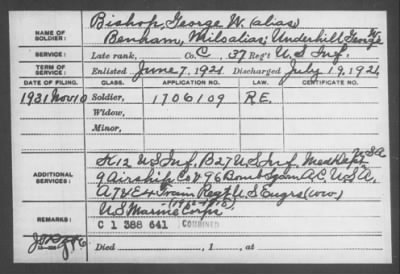 NAME OF SOLDIER: Bishop, George W. (alias)
Benham, Milo alias; Underhill George
SERVICE: Late rank, Co. C, 37 Reg't U.S. Inf.
TERM OF SERVICE: Enlisted June 7, 1921, Discharged July 19, 1921
DATE OF FILING. CLASS. APPLICATION NO. LAW. CERTIFICATE NO.
1931 Nov 10 Soldier, 1706109 R.E.
Widow,
Minor,
ADDITIONAL SERVICES: K 12 U.S. Inf., B 27 U.S. Inf., Med Dept U.S.A.
9 Airship Co & 96 Bomb Sqdn A.C. U.S.A.
A 7 & E 4 Train Regt U.S. Engrs (WW)
REMARKS: U.S. Marine Corps
C 1 388 641 COMBINED
Died , 1 , at